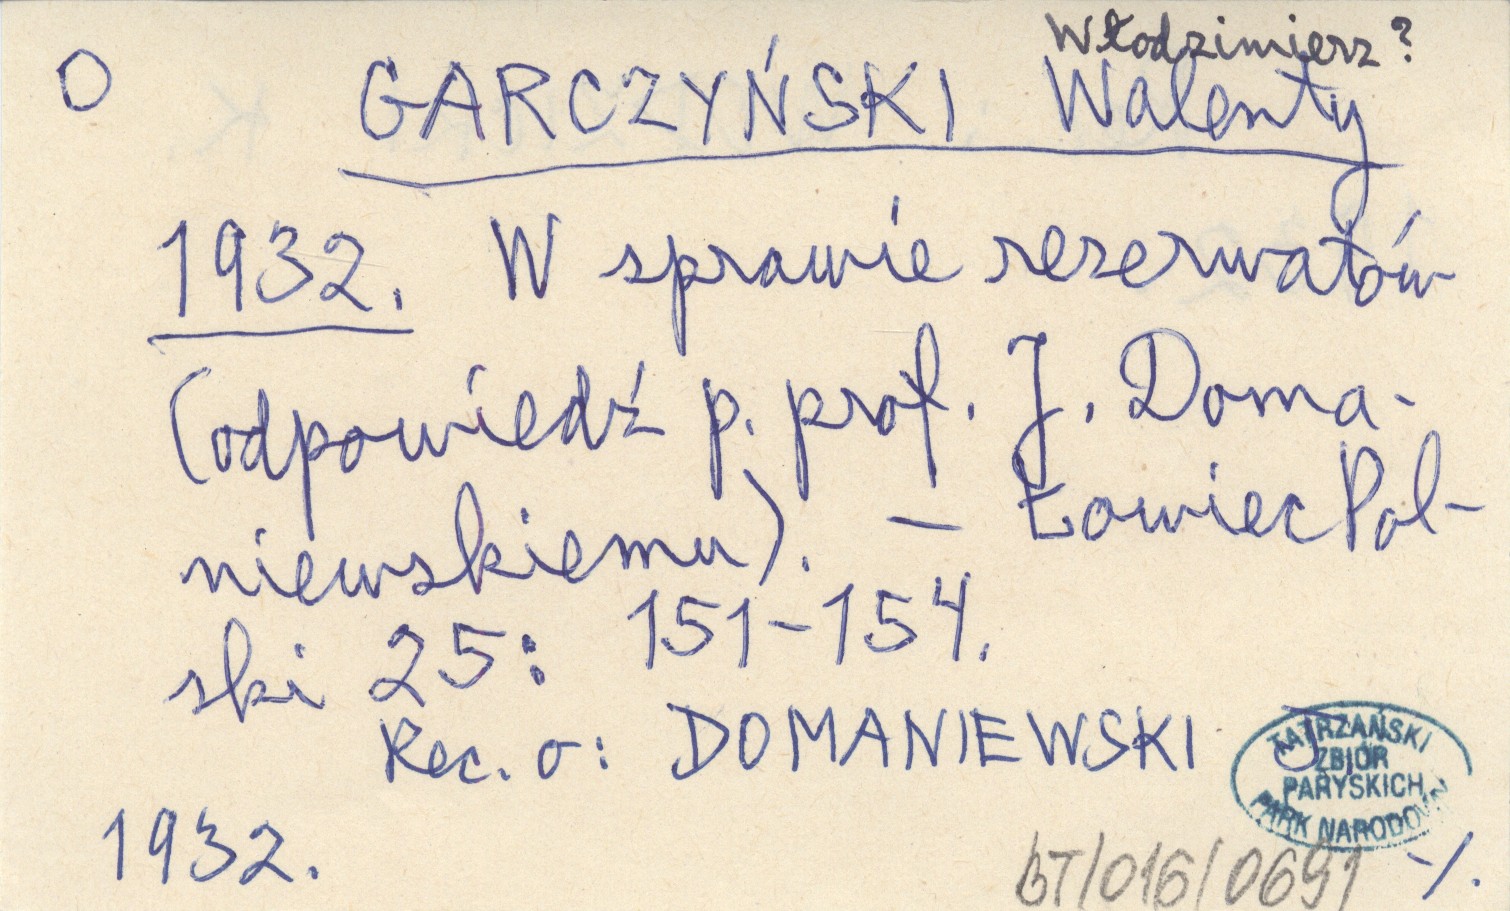 Włodzimierz?
O GARCZYŃSKI Walenty
1932. W sprawie rezerwatów
(odpowiedź p. prof. J. Doma-
niewskiemu). — Łowiec Pol-
ski 25: 151-154.
Rec. o: DOMANIEWSKI J
1932.
TATRZAŃSKI
ZBIÓR
PARYSKICH
PARK NARODOWY
BT/016/0691
-/.